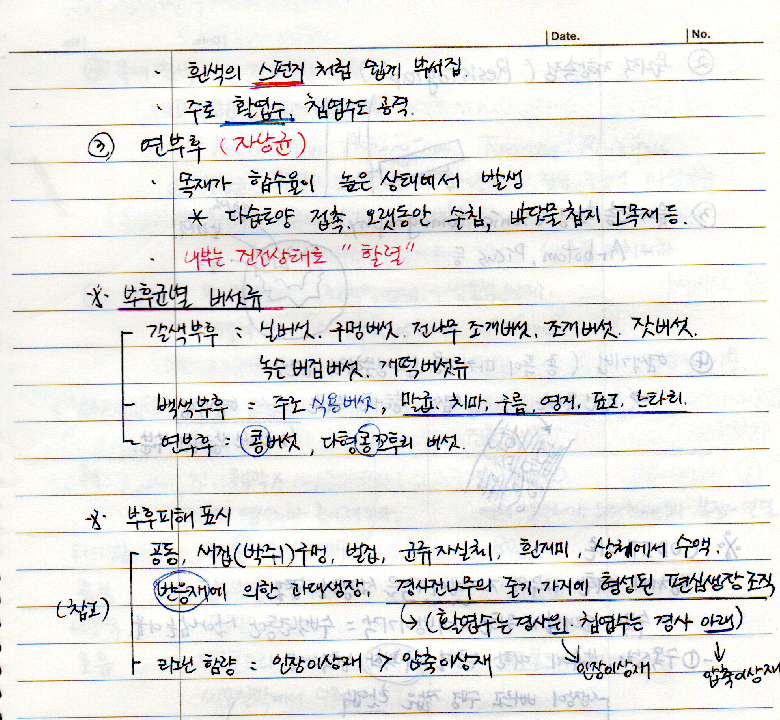 Date. No.
· 흰색의 스펀지 처럼 쉽게 부서짐.
· 주로 활엽수, 침엽수도 공격.
③ 연부후 (자낭균)
· 목재가 함수율이 높은 상태에서 발생
* 다습토양 접촉. 오랫동안 순침, 바닷물침지 고목재 등.
· 내부는 건전상태로 "할렬"
※ 부후균별 버섯류
갈색부후 = 실버섯. 구멍버섯. 전나무 조개버섯, 조개버섯. 잣버섯.
녹슨버짐버섯. 개떡버섯류
백색부후 = 주로 식용버섯, 말굽. 치마. 구름, 영지. 표고. 느타리.
연부후 = 콩버섯, 다형콩꼬투리 버섯.
※ 부후피해 표시
공동, 새집(박쥐)구멍, 벌집, 균류자실체, 흰개미, 상처에서 수액.
(참고) 반응재에 의한 과대생장, 경사진나무의 줄기, 가지에 형성된 편심생장조직
→ (활엽수는 경사위 침엽수는 경사 아래)
리그닌 함량 = 인장이상재 > 압축이상재 인장이상재 압축이상재